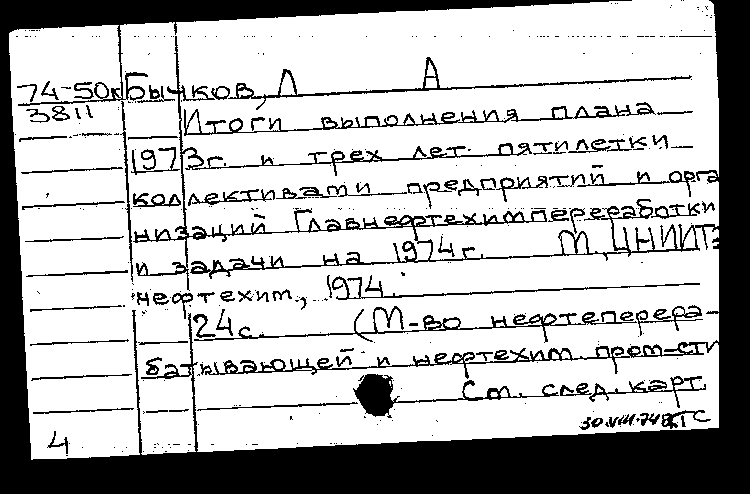 74-50к Бычков, Л А
3811
Итоги выполнения плана
1973г. и трех лет. пятилетки
коллективами предприятий и орга
низаций Главнефтехимпереработки
и задачи на 1974г. М., ЦНИИТЭ
нефтехим., 1974.
24с. (М-во нефтеперера-
батывающей и нефтехим. пром-сти
См. след. карт.
4
30.VIII.74